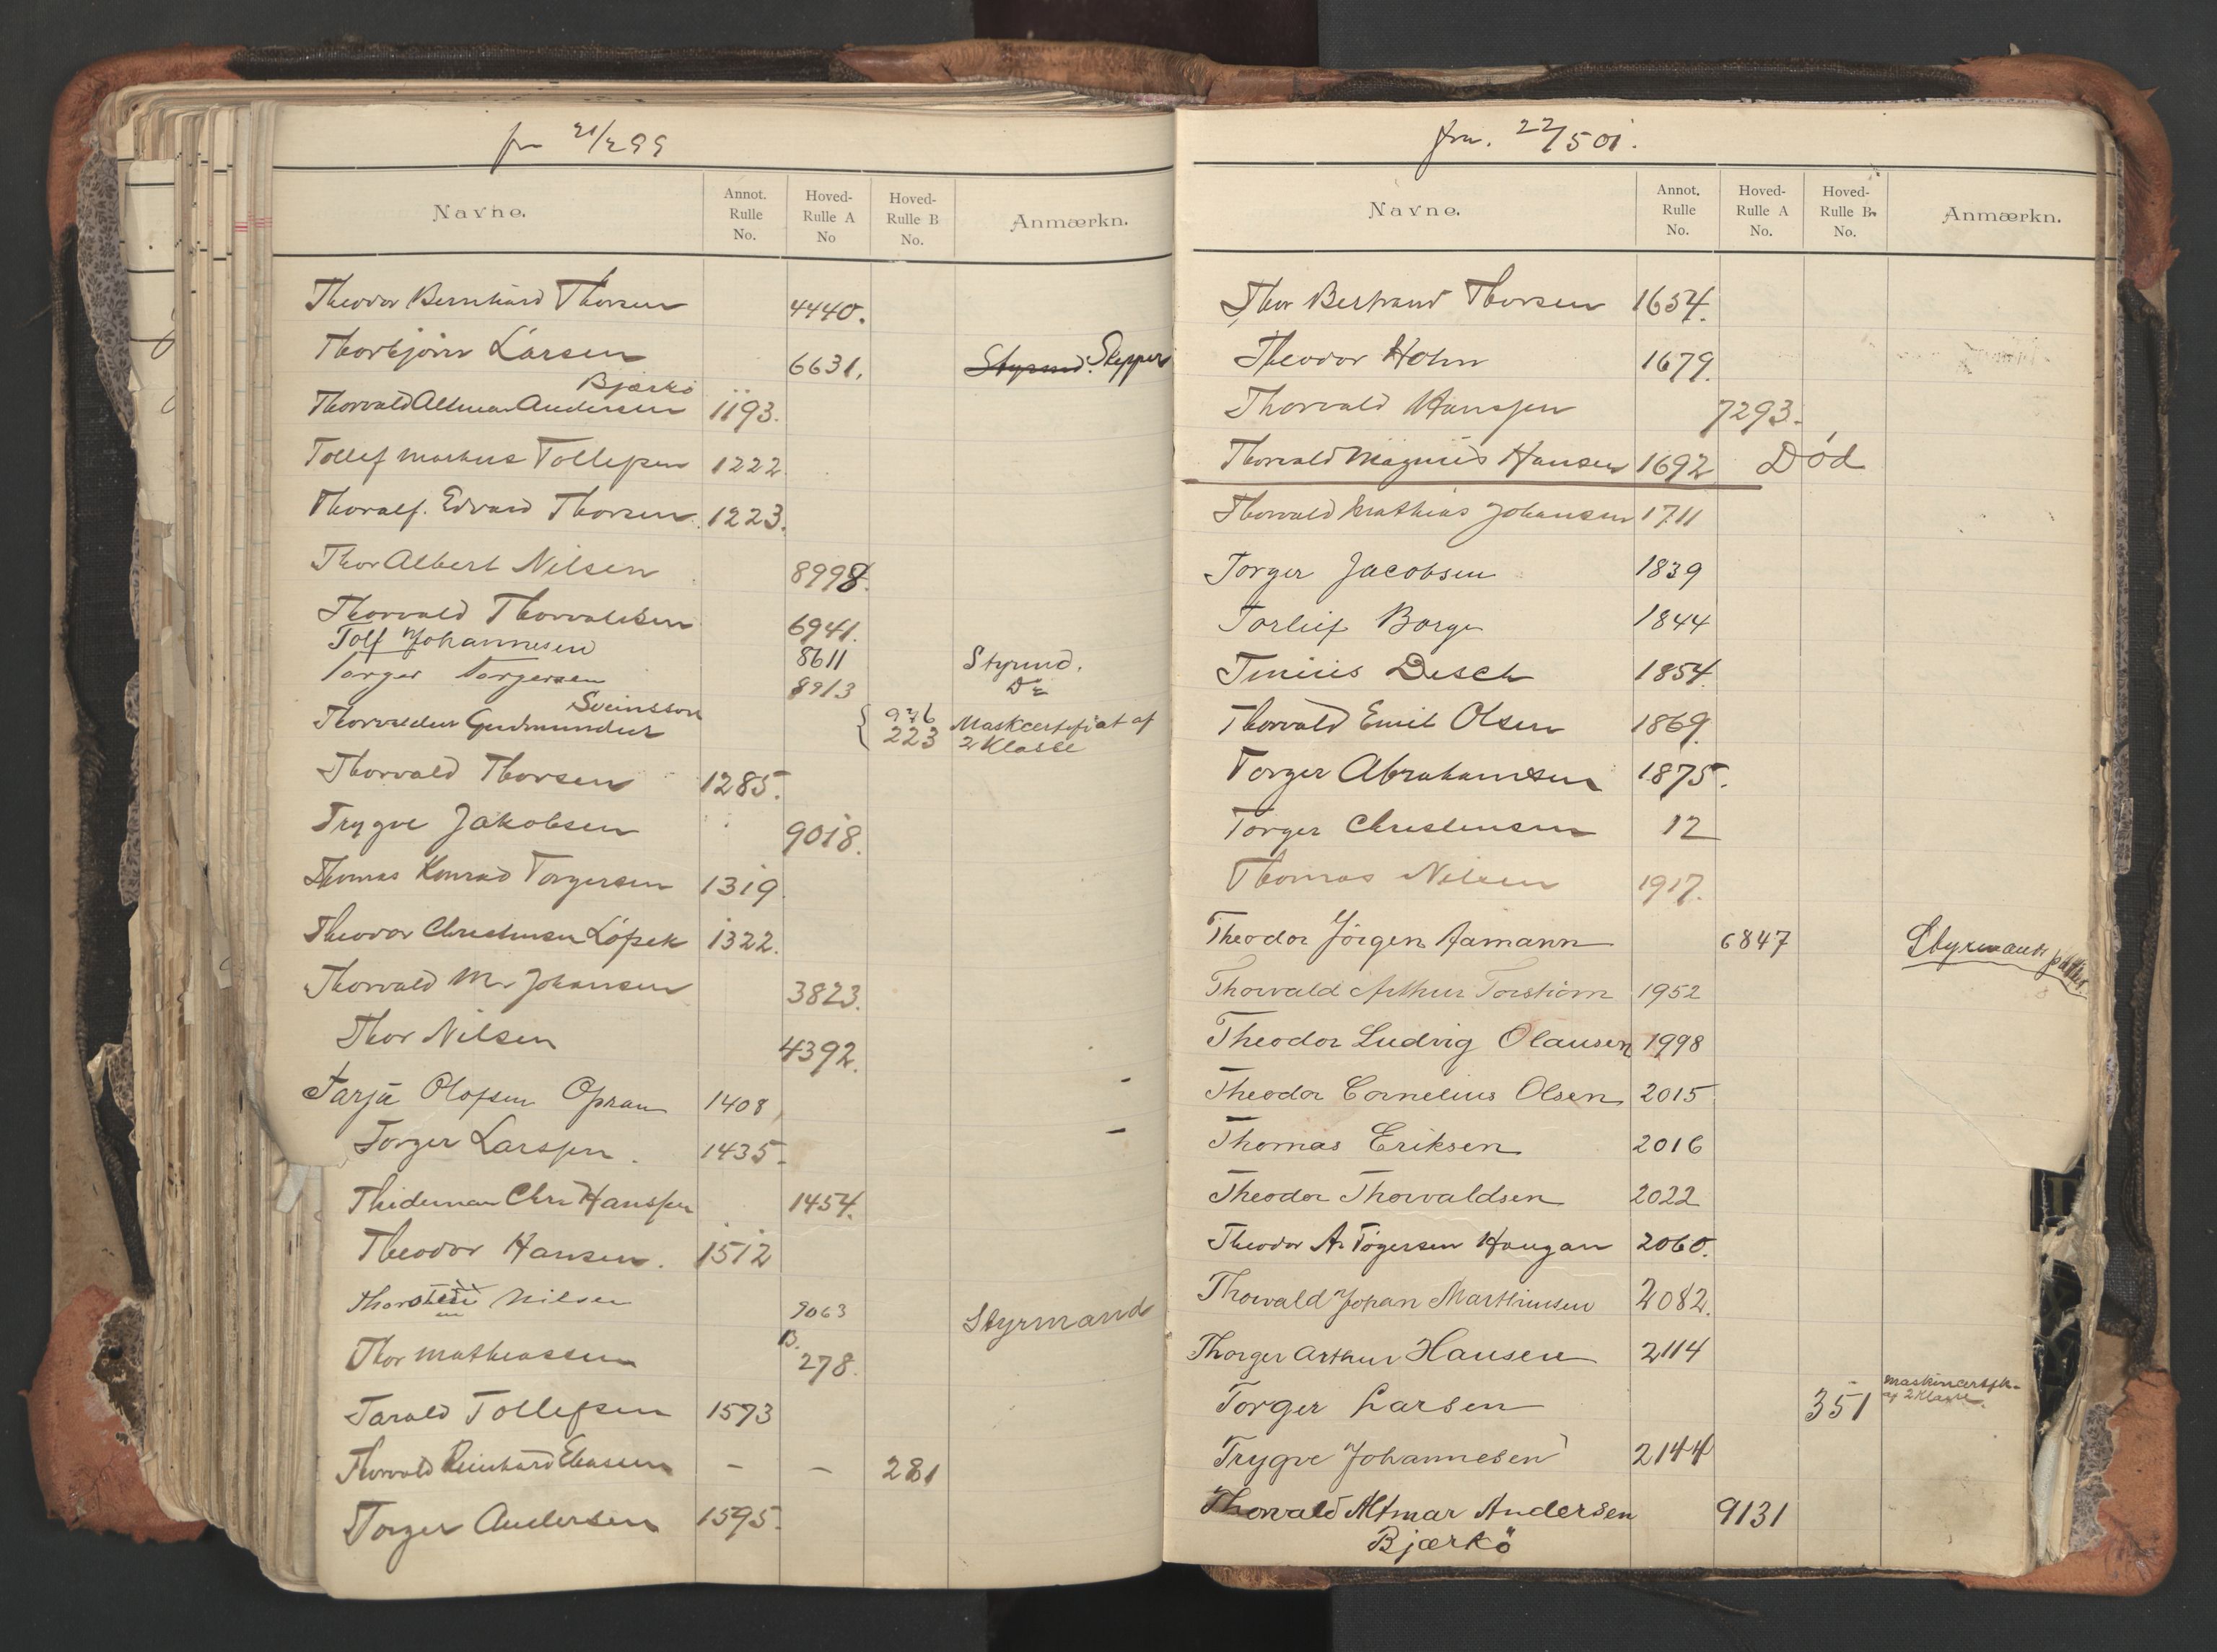 fr 21/2 99
Navne. Annot. Rulle No. Hoved-Rulle A No Hoved-Rulle B No. Anmærkn.
Theodor Bernhard Thorsen 4440.
Thorbjörn Larsen 6631. Styrmd. Skipper
Bjærkö
Thorvald Altmar Andersen 1193.
Tollef Markus Tollefsen 1222
Thoralf. Edvard Thorsen. 1223.
Thor Albert Nilsen 8998.
Thorvald Thorvaldsen 6941.
Tolf Johannesen 8611 Styrmd.
Torger Torgersen 8913 Do
Sveinsson
Thorvaldur Gudmundur { 976 Maskcertifiat af
223 2 Klasse
Thorvald Thorsen 1285.
Trygve Jakobsen 9018.
Thomas Konrad Torgersen 1319
Theodor Christensen Löpek 1322.
Thorvald M. Johansen 3823.
Thor Nilsen 4392.
Tarjä Olofsen 1408
Torger Larssen. 1435.
Thideman Chr. Hanssen 1454.
Theodor Hansen. 1512
Thorstein Nilsen 9063 Styrmand
Thor Mathiassen B. 278.
Tarald Tollefsen 1573
Thorvald Reinhard Eliasen - - 281
Torger Andersen 1595.
fra. 22/5 01.
Navne. Annot. Rulle No. Hoved-Rulle A No. Hoved-Rulle B. No. Anmærkn.
Thor Bertrand Thorsen 1654.
Theodor Holm 1679.
Thorvald Hanssen 7293.
Thorvald Magnus Hansen 1692 Död
Thorvald Mathias Johansen 1711
Torger Jacobsen 1839
Torleif Borge 1844
Tinius Desch 1854.
Thorvald Emil Olsen 1869.
Torger Abrahamsen 1875.
Torger Christensen 12
Thomas Nilsen 1917.
Theodor Jörgen Aamann 6847 Styrmands
Thorvald Arthur Torstrøm 1952
Theodor Ludvig Olausen 1998
Theodor Cornelius Olsen 2015
Thomas Eriksen 2016
Theodor Thorvaldsen 2022
Theodor A. Tögersen Haugan 2060.
Thorvald Johan Marthinsen 2082.
Thorger Arthur Hansen 2114
Torger Larsen 351 Maskincertfk. af 2 Klasse.
Trygve Johannesen 2144
Thorvald Altmar Andersen 9131
Bjærkö